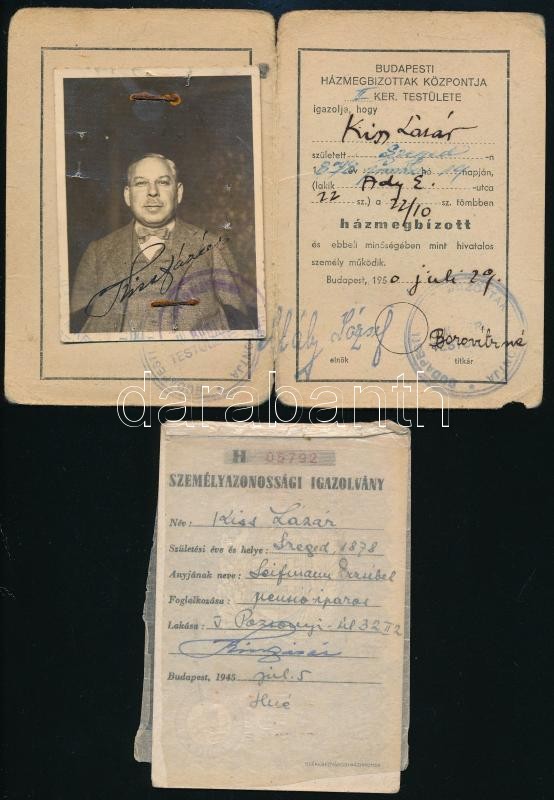 BUDAPESTI
HÁZMEGBIZOTTAK KÖZPONTJA
KER. TESTÜLETE
igazolja, hogy
Kiss Lázár
született Szeged -n
év hó 19 napján,
(lakik Ady E. -utca
22 sz.) a 22/10 sz. tömbben
házmegbízott
és ebbeli minőségében mint hivatalos
személy működik.
Budapest, 1950 juli 29
József
elnök titkár
Kiss Lázár
darabanth
H 05792
SZEMÉLYAZONOSSÁGI IGAZOLVÁNY
Név: Kiss Lázár
Születési éve és helye: Szeged, 1878
Anyjának neve: Seifmann Erzsébet
Foglalkozása: iparos
Lakása: Pozsonyi-út 32 II 2
Budapest, 1945 júl. 5